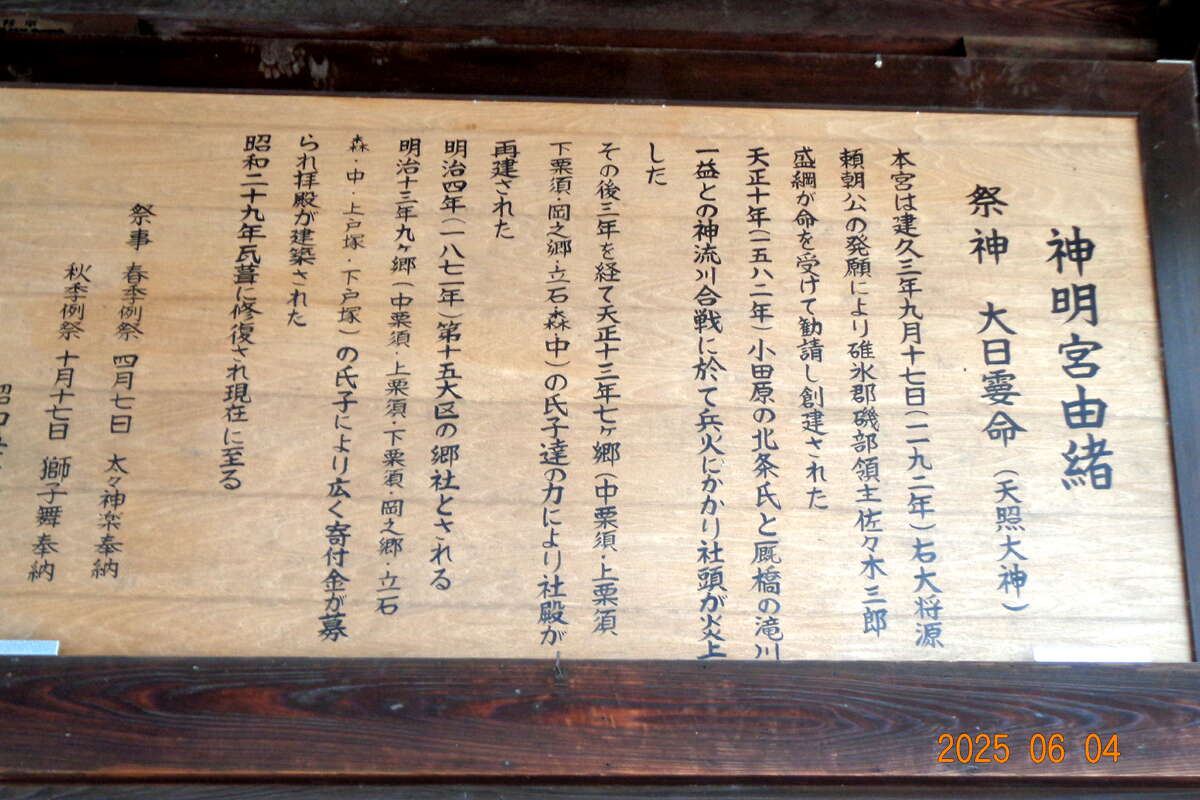 神明宮由緒
祭神 大日孁命 (天照大神)
本宮は建久三年九月十七日(一一九二年)右大将源
頼朝公の発願により碓氷郡磯部領主佐々木三郎
盛綱が命を受けて勧請し創建された
天正十年(一五八二年)小田原の北条氏と厩橋の滝川
一益との神流川合戦に於て兵火にかかり社頭が炎上
した
その後三年を経て天正十三年七ヶ郷(中栗須・上栗須
下栗須・岡之郷・立石・森・中)の氏子達の力により社殿が
再建された
明治四年(一八七一年)第十五大区の郷社とされる
明治十三年九ヶ郷(中栗須・上栗須・下栗須・岡之郷・立石
森・中・上戸塚・下戸塚)の氏子により広く寄付金が募
られ拝殿が建築された
昭和二十九年瓦葺に修復され現在に至る
祭事 春季例祭 四月七日 太々神楽奉納
秋季例祭 十月十七日 獅子舞奉納
2025 06 04